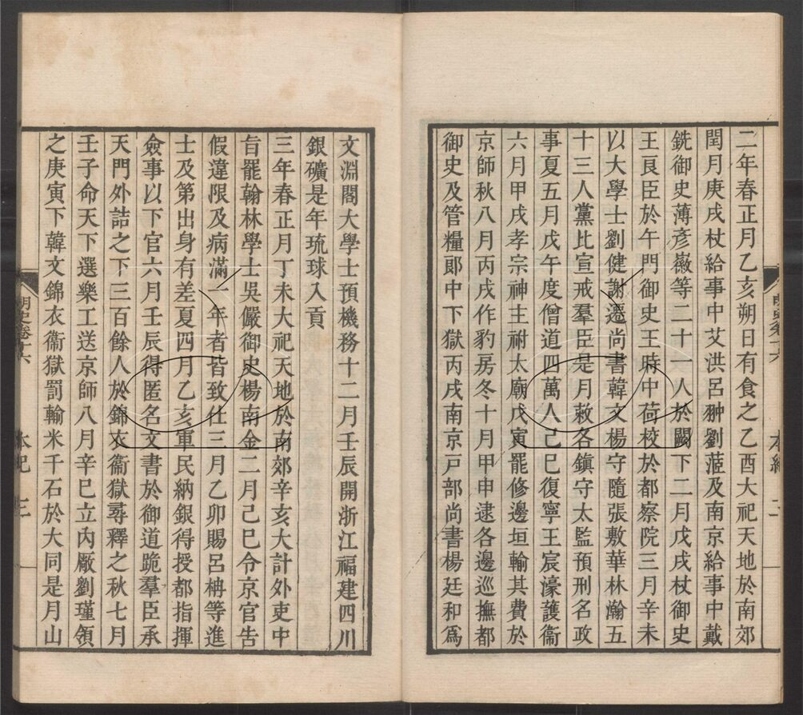 二年春正月乙亥朔日有食之乙酉大祀天地於南郊
閏月庚戌杖給事中艾洪呂翀劉蒞及南京給事中戴
銑御史薄彥徽等二十一人於闕下二月戊戌杖御史
王良臣於午門御史王時中荷校於都察院三月辛未
以大學士劉健謝遷尚書韓文楊守隨張敷華林瀚五
十三人黨比宣戒羣臣是月敕各鎮守太監預刑名政
事夏五月戊午度僧道四萬人己巳復寧王宸濠護衞
六月甲戌孝宗神主祔太廟戊寅罷修邊垣輸其費於
京師秋八月丙戌作豹房冬十月甲申逮各邊巡撫都
御史及管糧郞中下獄丙戌南京戸部尚書楊廷和爲
明史卷十六 本紀 二
文淵閣大學士預機務十二月壬辰開浙江福建四川
銀礦是年琉球入貢
三年春正月丁未大祀天地於南郊辛亥大計外吏中
旨罷翰林學士吳儼御史楊南金二月己巳令京官告
假違限及病滿一年者皆致仕三月乙卯賜呂柟等進
士及第出身有差夏四月乙亥軍民納銀得授都指揮
僉事以下官六月壬辰得匿名文書於御道跪羣臣承
天門外詰之下三百餘人於錦衣衞獄尋釋之秋七月
壬子命天下選樂工送京師八月辛巳立內厰劉瑾領
之庚寅下韓文錦衣衞獄罰輸米千石於大同是月山
明史卷十六 本紀 三